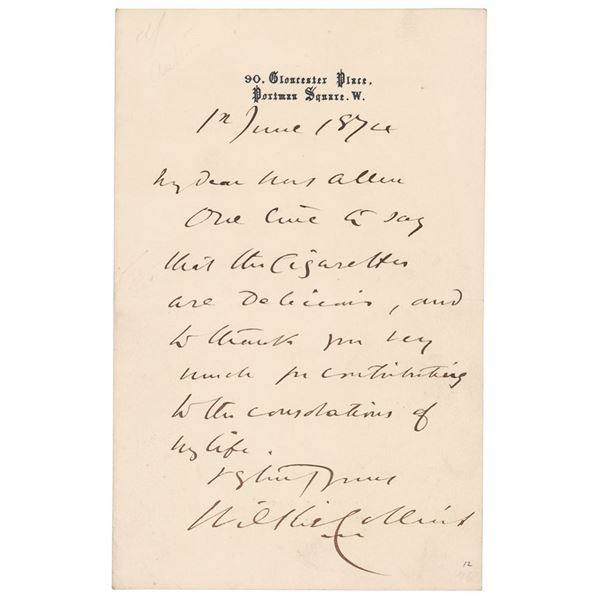 90. Gloucester Place.
Portman Square. W.
1st June 1874
My dear Mrs Allen
One line to say
that the Cigarettes
are delicious, and
to thank you very
much for contributing
to the consolations of
my life.
Yours
Wilkie Collins
12